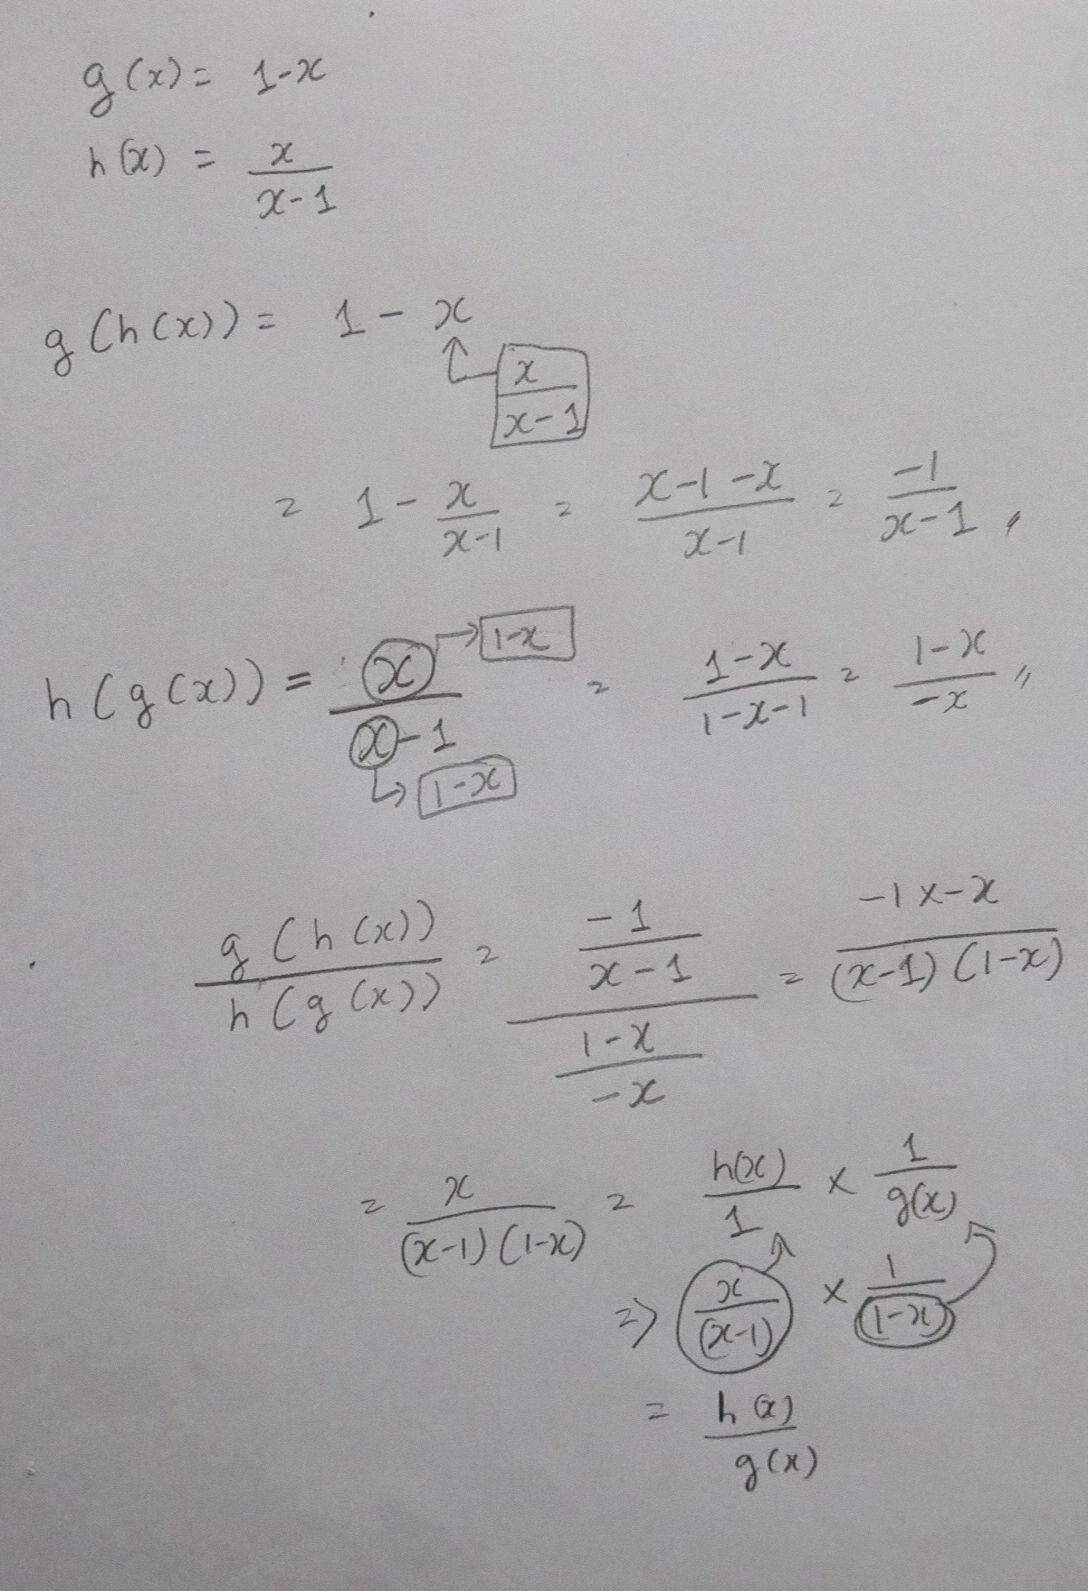 g(x) = 1-x
h(x) = x/(x-1)
g(h(x)) = 1 - x
x/(x-1)
= 1 - x/(x-1) = (x-1-x)/(x-1) = -1/(x-1) //
h(g(x)) = x/(x-1) → 1-x = (1-x)/(1-x-1) = (1-x)/(-x) //
→ 1-x
g(h(x))/h(g(x)) = (-1/(x-1))/((1-x)/(-x)) = (-1×-x)/((x-1)(1-x))
= x/((x-1)(1-x)) = h(x)/1 × 1/g(x)
⇒ x/(x-1) × 1/(1-x)
= h(x)/g(x)